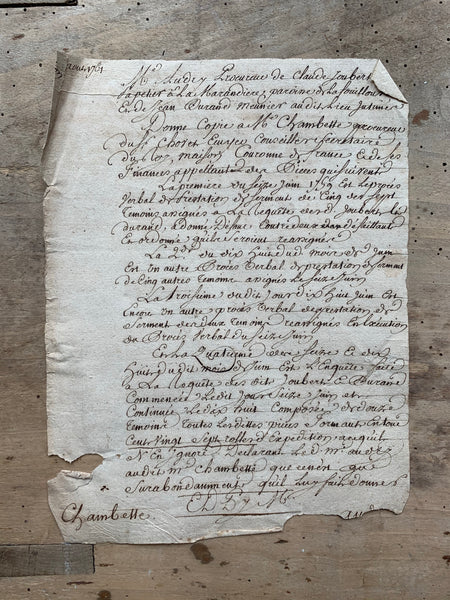 Me Audry Procureur de Claude Joubert
papetier a La Marandiere, paroisse de
Et de Jean Durand meunier audit Lieu
Donne Copie a Me Chambette procureur
du Sr Chovet Ecuyer Conseiller Secretaire
du Roy maison Couronne de france et de ses
finances appellant des Pieces qui suivent
La premiere du Seize Juin 1759 Est Le procès
Verbal de Prestation de Serment de Cinq des Sept
Temoins assignés a La Requette desd. Joubert &
durand, & Donné Defaut Contre deux dans defaillant
Et ordonné qu'ils seroient reassignés
La 2de du dix huit dud mois de Juin
Est un autre Procès Verbal de prestation de serment
de Cinq autres temoins assignés Le Seize Juin
La troisieme dudit Jour dix huit Juin Est
Encore un autre procès Verbal de prestation de
Serment de deux Temoins reassignés En Execution
du Procès Verbal du Seize Juin
Et La Quatrieme des Seize & dix
Huit dudit mois de Juin Est L'Enquete faite
a La Requette des dits Joubert & Durand
Commencée Ledit Jour Seize Juin et
Continuée Le dix huit Composée de douze
temoins toutes Lesdittes pieces formant En tout
Cent Vingt Sept rolles d'Expedition
N'En ignore Declarant Led Me
audit Me Chambette que ce n'est que
Surabondamment qu'il Luy fait donner
Chambette